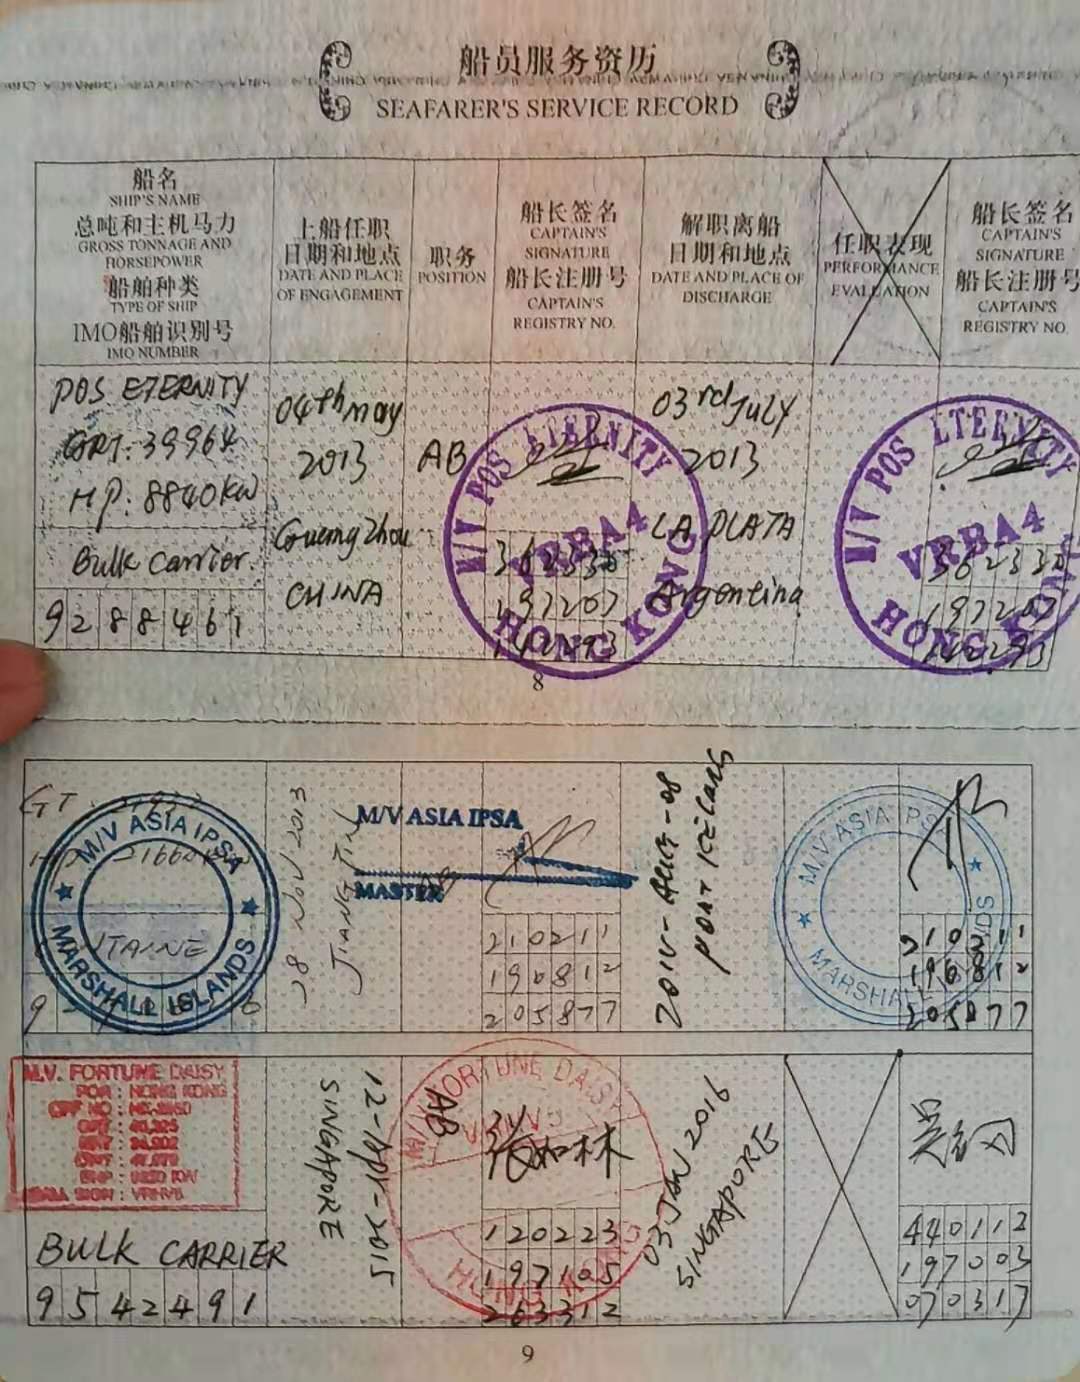 船员服务资历
SEAFARER'S SERVICE RECORD
船名
SHIP'S NAME
总吨和主机马力
GROSS TONNAGE AND
HORSEPOWER
船舶种类
TYPE OF SHIP
IMO船舶识别号
IMO NUMBER
上船任职
日期和地点
DATE AND PLACE
OF ENGAGEMENT
职务
POSITION
船长签名
CAPTAIN'S
SIGNATURE
船长注册号
CAPTAIN'S
REGISTRY NO.
解职离船
日期和地点
DATE AND PLACE OF
DISCHARGE
任职表现
PERFORMANCE
EVALUATION
船长签名
CAPTAIN'S
SIGNATURE
船长注册号
CAPTAIN'S
REGISTRY NO.
POS ETERNITY
GRT: 39964
HP: 8840KW
Bulk Carrier
9288461
04th may
2013
Guang Zhou
CHINA
AB
M/V POS ETERNITY
VRBA4
HONG KONG
197207
03rd July
2013
LA PLATA
Argentina
M/V POS ETERNITY
VRBA4
HONG KONG
362330
197207
8
GT
M/V ASIA IPSA
MARSHALL ISLANDS
28 NOV 2013
JIANG JIN
M/V ASIA IPSA
MASTER
210211
196812
205877
2014-AUG-08
PORT KELANG
M/V ASIA IPSA
MARSHALL ISLANDS
210211
196812
205877
M.V. FORTUNE DAISY
POR : HONG KONG
CALL SIGN : VRHV5
BULK CARRIER
9542491
12-Apr-2015
SINGAPORE
AB
M/V FORTUNE DAISY
HONG KONG
张如林
120223
197105
263312
03 JAN 2016
SINGAPORE
440112
197003
070317
9